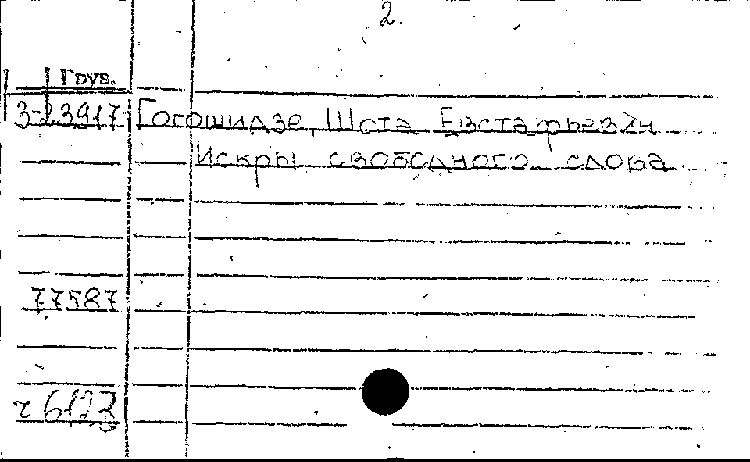 2.
Груз.
3-23917 Гогошидзе, Шота Евстафьевич
Искры свободного слова
77587
ч 6123